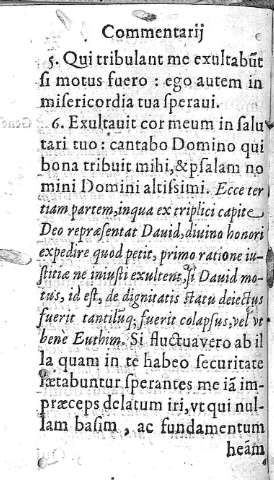 Commentarij
5. Qui tribulant me exultabũt
si motus fuero : ego autem in
misericordia tua speraui.
6. Exultauit cor meum in salu
tari tuo : cantabo Domino qui
bona tribuit mihi,&psalam no
mini Domini altissimi. Ecce ter
tiam partem,inqua ex triplici capite
Deo repræsentat Dauid,diuino honori
expedire quod petit, primo ratione iu-
stitiæ ne iniusti exultent,si Dauid mo-
tus, id est, de dignitatis statu deiectus
fuerit tantilũq; fuerit colapsus,vel vt
bene Euthim. Si fluctuavero ab il
la quam in te habeo securitate
lætabuntur sperantes me iã im-
præceps delatum iri,vt qui nul-
lam basim, ac fundamentum
heãm